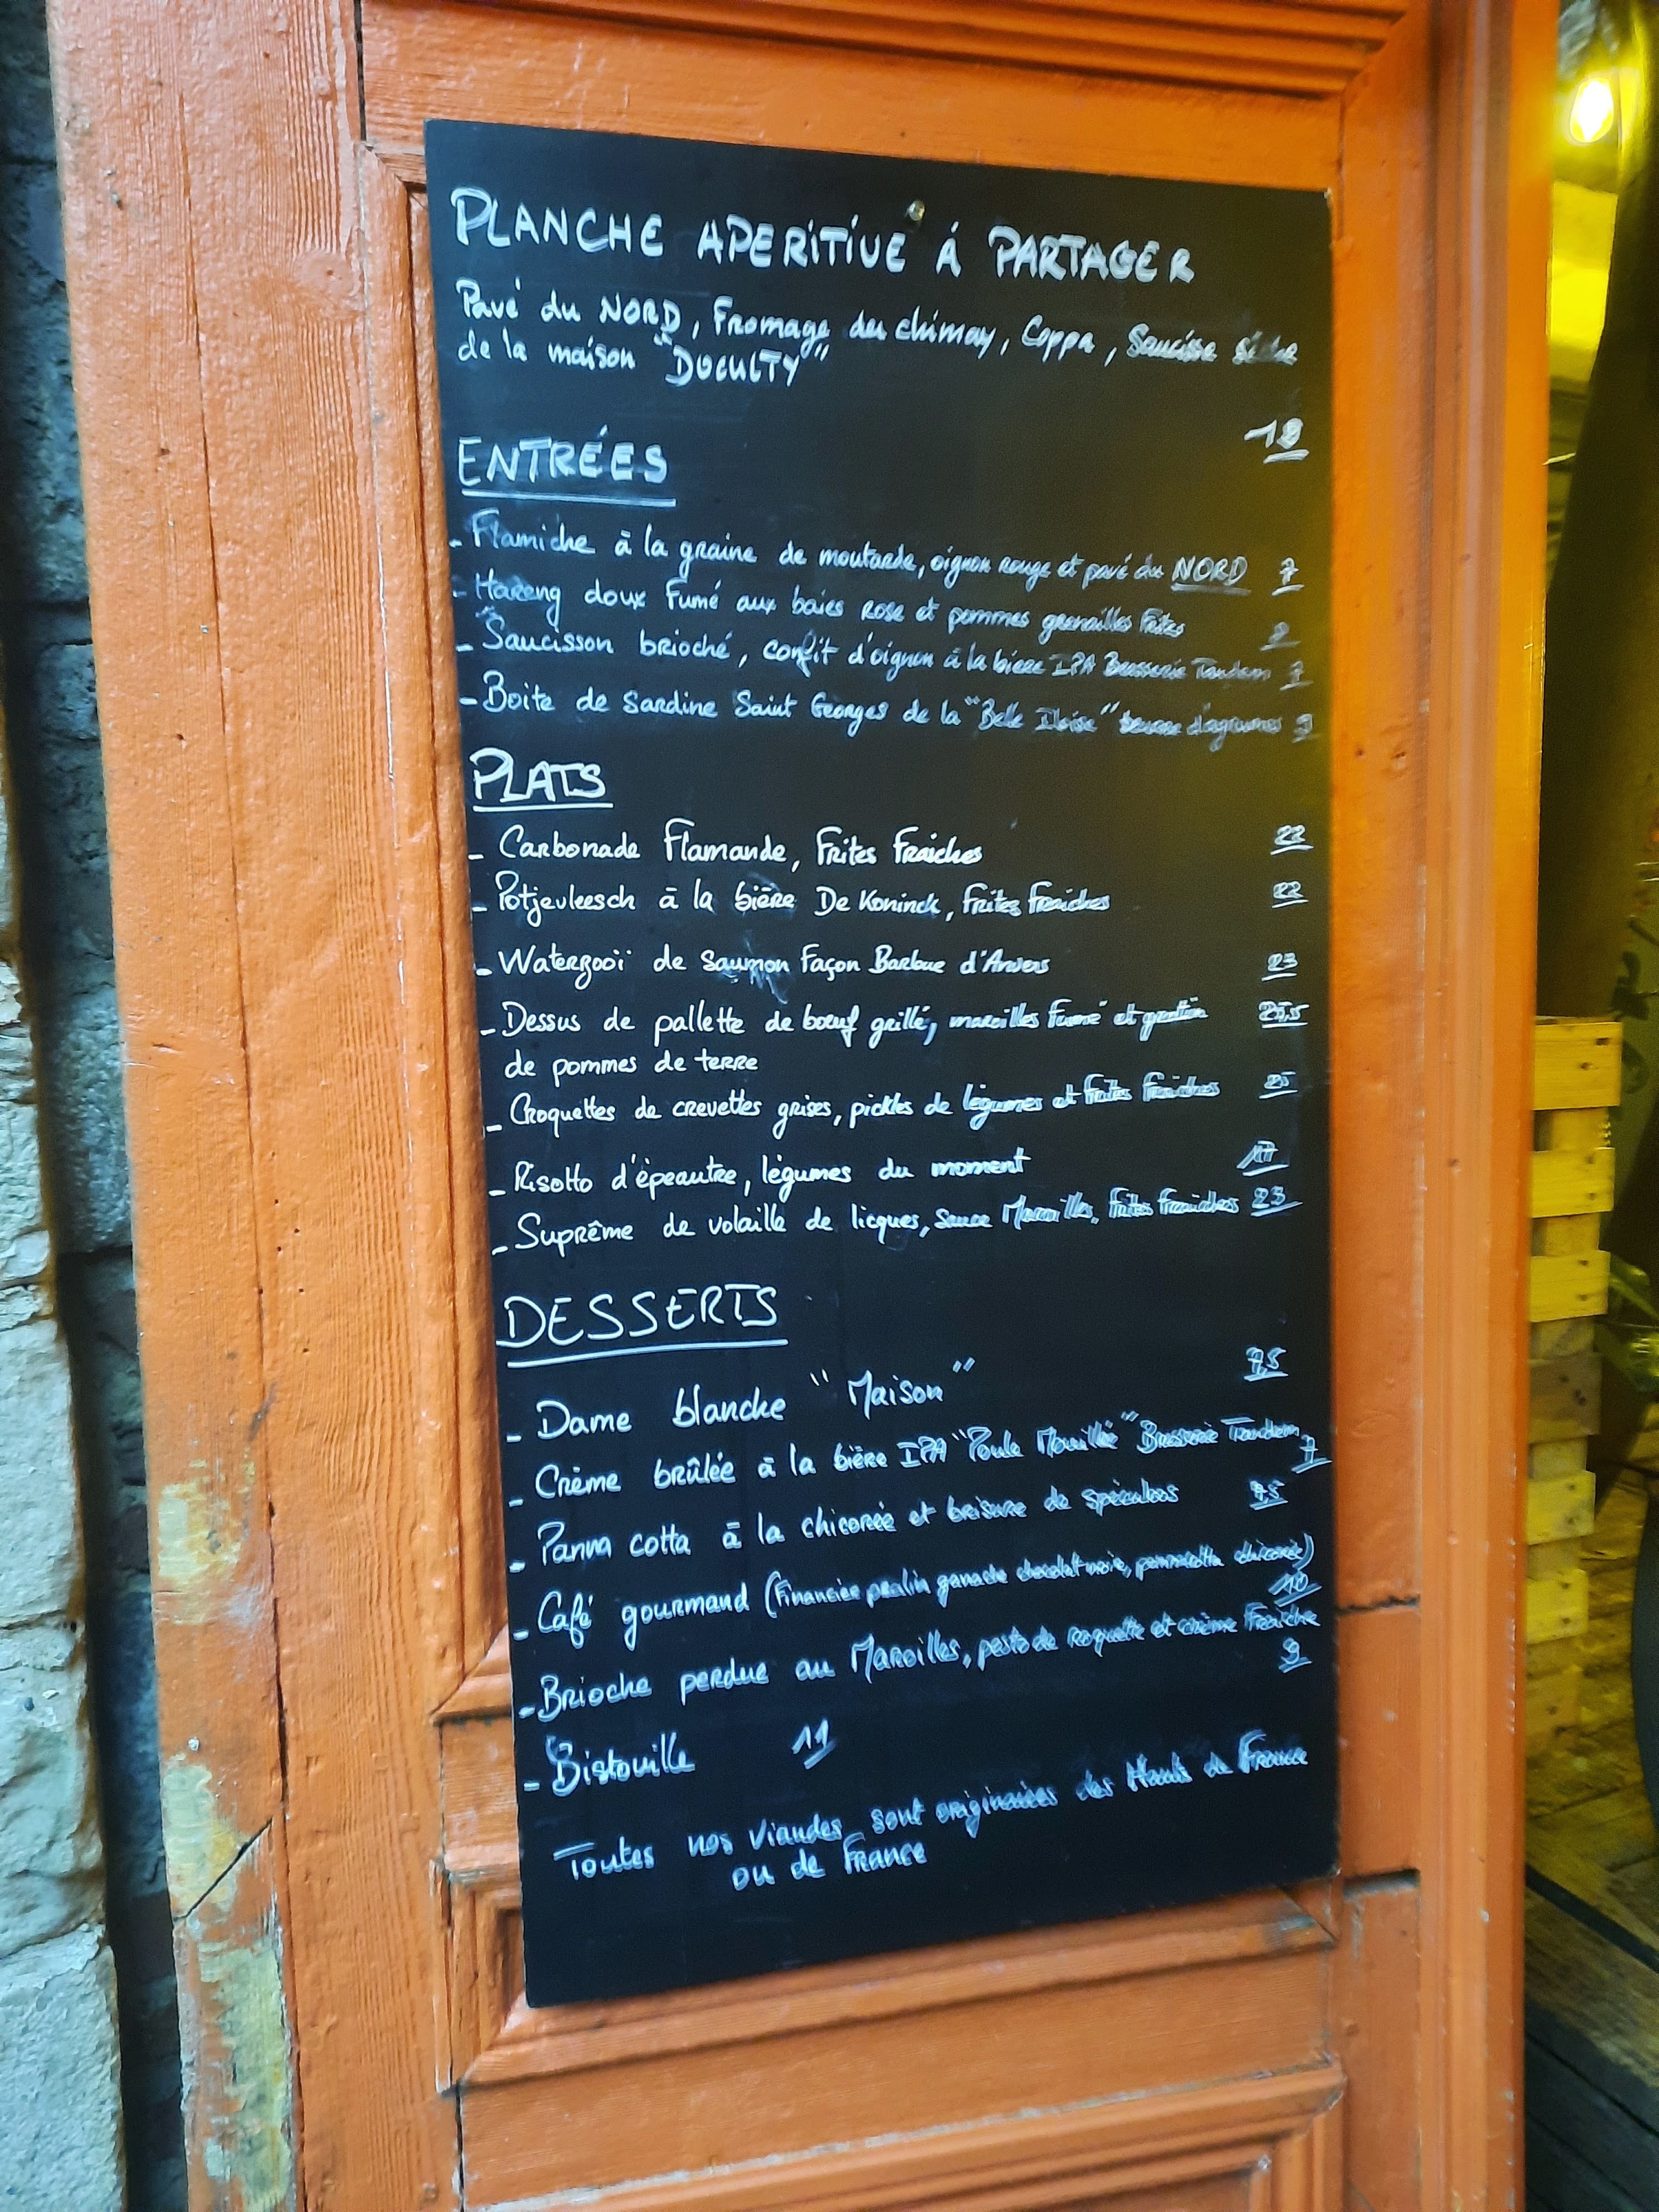 PLANCHE APERITIVE À PARTAGER
Pavé du NORD, Fromage du chimay, Coppa, Saucisse sèche
de la maison "DUCULTY"
18
ENTRÉES
- Flamiche à la graine de moutarde, oignon rouge et pavé du NORD 7
- Hareng doux Fumé aux baies rose et pommes grenailles Frites
- Saucisson brioché, confit d'oignon à la bière IPA Brasserie Tandem 7
- Boite de Sardine Saint Georges de la "Belle Iloise" beurre d'agrumes 9
PLATS
- Carbonade Flamande, Frites Fraiches 22
- Potjevleesch à la bière De Koninck, Frites Fraiches 22
- Waterzooï de Saumon Façon Barbue d'Anvers 23
- Dessus de pallette de boeuf grillé, maroilles Fumé et gratin
de pommes de terre
- Croquettes de crevettes grises, pickles de légumes et Frites Fraiches 25
- Risotto d'épeautre, légumes du moment 17
- Suprême de volaille de licques, Sauce Maroilles, Frites Fraiches 23
DESSERTS
- Dame blanche "Maison" 7,5
- Crème brûlée à la bière IPA "Poule Mouillée" Brasserie Tandem
7
- Panna cotta à la chicorée et brisure de spéculoos 7,5
- Café gourmand (Financier pralin ganache chocolat noir, pannacotta chicorée)
10
- Brioche perdue au Maroilles, pesto de roquette et crème Fraîche
9
- Bistouille 11
Toutes nos viandes sont originaires des Hauts de France
ou de France